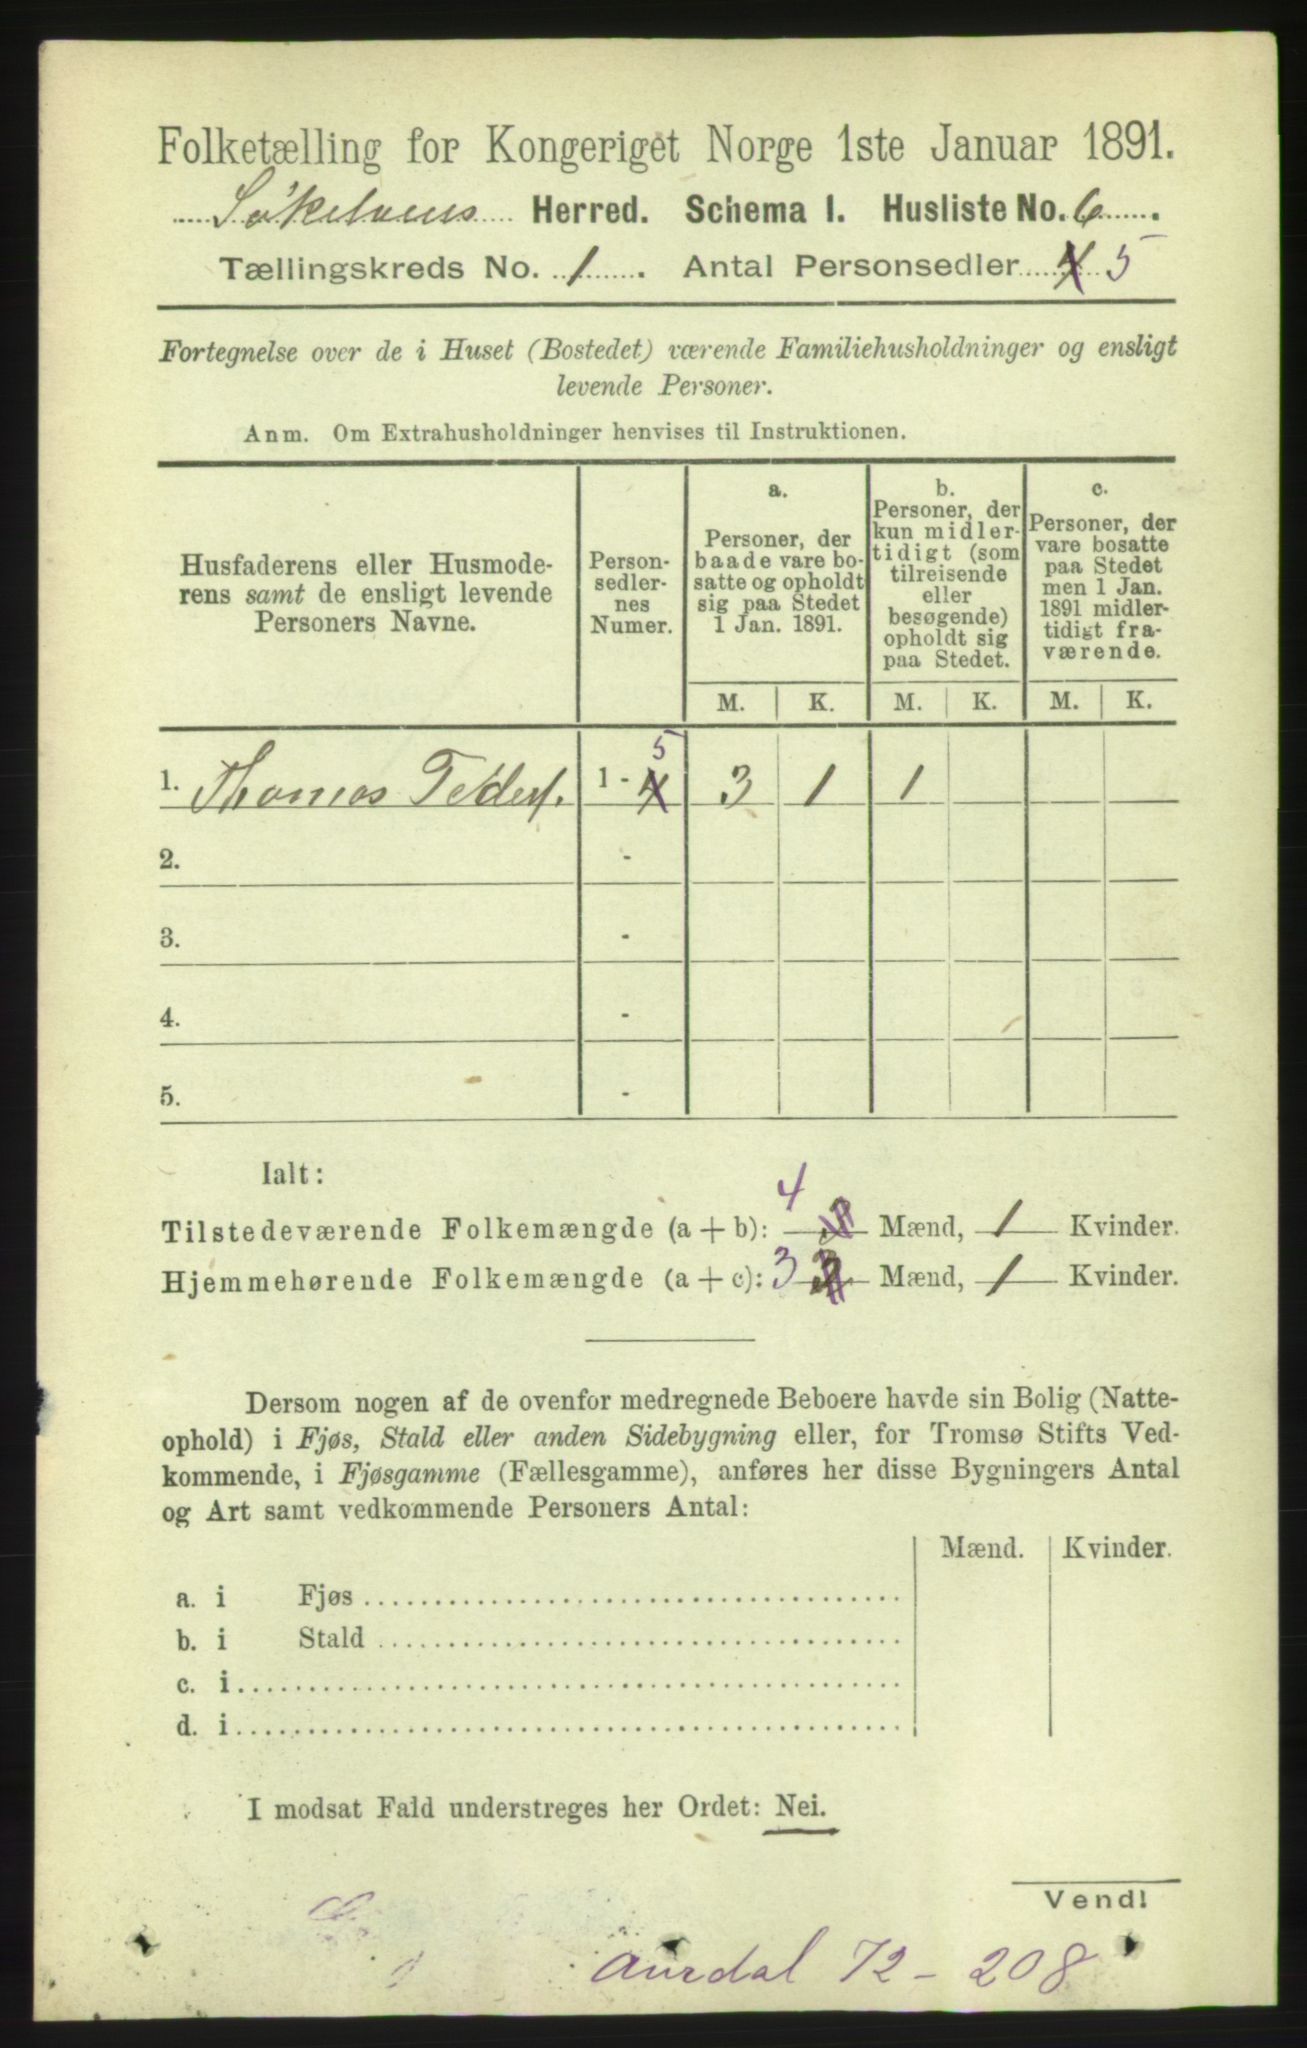 Folketælling for Kongeriget Norge 1ste Januar 1891.
Søkelvens Herred. Schema I. Husliste No. 6.
Tællingskreds No. 1. Antal Personsedler 4 5
Fortegnelse over de i Huset (Bostedet) værende Familiehusholdninger og ensligt
levende Personer.
Anm. Om Extrahusholdninger henvises til Instruktionen.
Husfaderens eller Husmode-
rens samt de ensligt levende
Personers Navne.
Person-
sedler-
nes
Numer.
a.
Personer, der
baade vare bo-
satte og opholdt
sig paa Stedet
1 Jan. 1891.
b.
Personer, der
kun midler-
tidigt (som
tilreisende
eller
besøgende)
opholdt sig
paa Stedet.
c.
Personer, der
vare bosatte
paa Stedet
men 1 Jan.
1891 midler-
tidigt fra-
værende.
M. K. M. K. M. K.
1. Thomas 1 - 4 5 3 1 1
2. -
3. -
4. -
5. -
Ialt:
Tilstedeværende Folkemængde (a + b): 4 3 Mænd, 1 Kvinder.
Hjemmehørende Folkemængde (a + c): 3 Mænd, 1 Kvinder.
Dersom nogen af de ovenfor medregnede Beboere havde sin Bolig (Natte-
ophold) i Fjøs, Stald eller anden Sidebygning eller, for Tromsø Stifts Ved-
kommende, i Fjøsgamme (Fællesgamme), anføres her disse Bygningers Antal
og Art samt vedkommende Personers Antal:
Mænd. Kvinder.
a. i Fjøs
b. i Stald
c. i
d. i
I modsat Fald understreges her Ordet: Nei.
Vend!
Aurdal 72 - 208